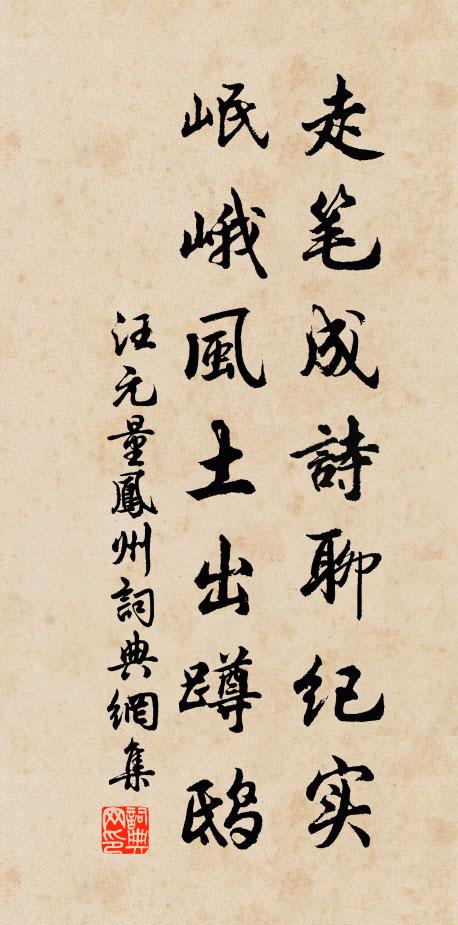 走笔成詩聊纪实
岷峨風土出蹲鸱
汪元量鳳州詞典網集
詞典網印